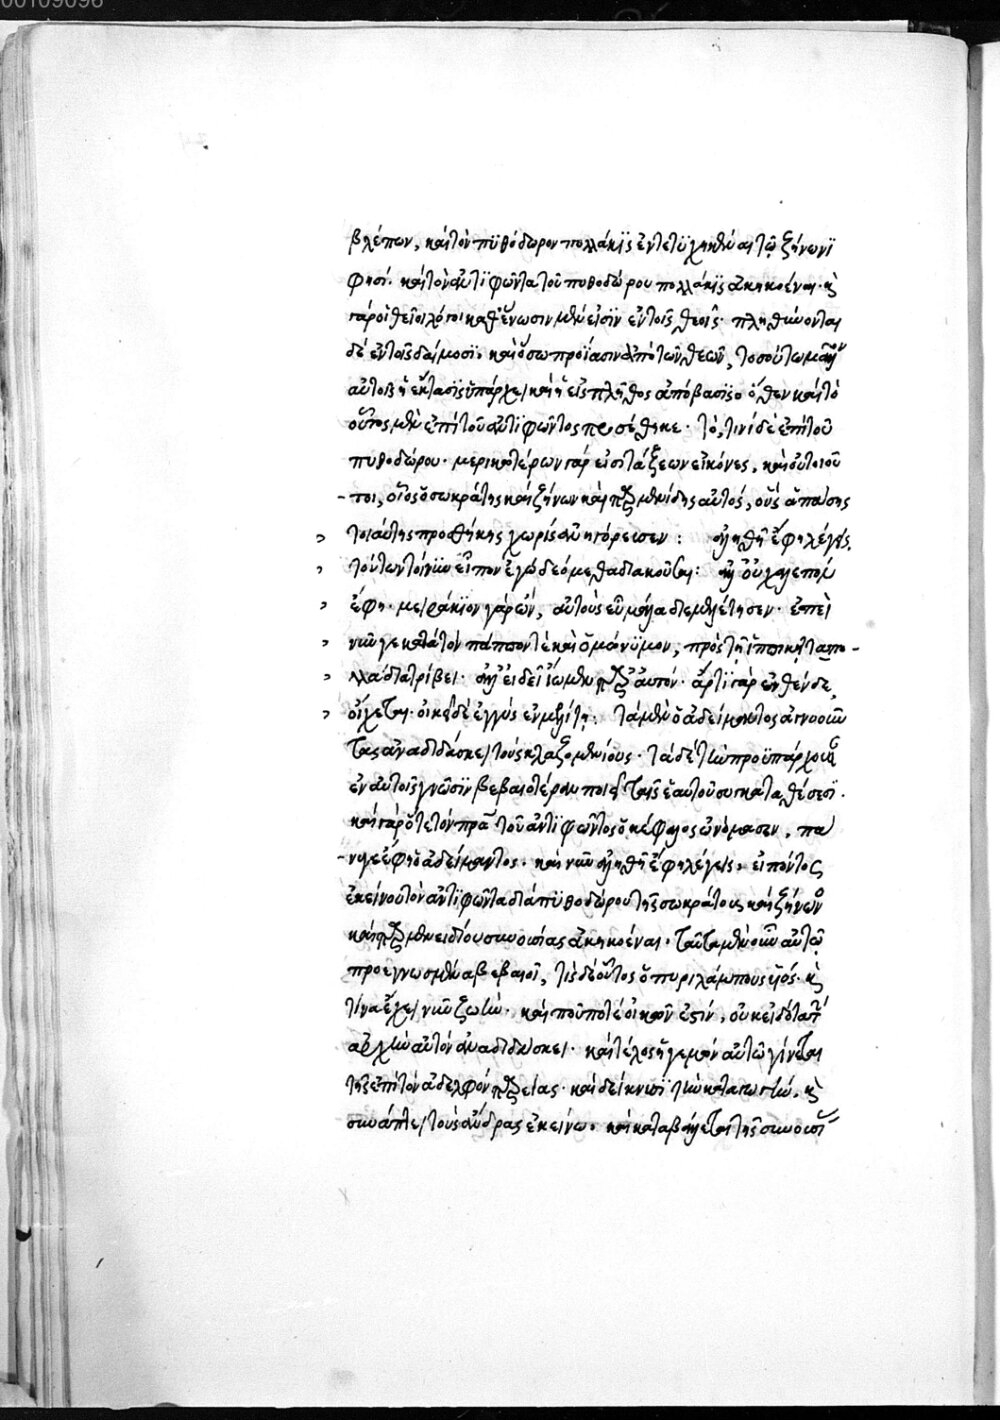 00109096
βλέπων, καὶ τὸν πυθόδωρον πολλάκις ἐντετυχηκέναι τῶ ζήνωνι
φησί. καὶ τὸν ἀντιφῶντα τοῦ πυθοδώρου πολλάκις ἀκηκοέναι. κ
γὰρ οἱ θεῖοι λόγοι καθ' ἕνωσιν μὲν εἰσὶν ἐν τοῖς θεοῖς. πληθύονται
δὲ ἐν τοῖς δαίμοσι. καὶ ὅσω προΐασιν ἀπὸ τῶν θεῶν, τοσούτω μᾶλλον
αὐτοῖς ἡ ἔκτασις ὑπάρχει καὶ ἡ εἰς πλῆθος ἀπόβασις ὅθεν καὶ τὸ
οὗτος μὲν ἐπὶ τοῦ ἀντιφῶντος προσέθηκε. τὸ, τινὶ δὲ ἐπὶ τοῦ
πυθοδώρου. μερικωτέρων γάρ εἰσι τάξεων εἰκόνες, καὶ οὗτοι οὔ
-ποι, οἷος ὁ σωκράτης καὶ ζήνων καὶ παρμενίδης αὐτός, οὓς ἁπάσης
τοιαύτης προσθήκης χωρὶς ἀνηγόρευσεν : ἀληθῆ ἔφη λέγεις.
τούτων τοίνυν εἶπον ἐγὼ δεόμεθα διακοῦσαι : ἀλλ' οὐ χαλεπὸν
ἔφη. μειράκιον γὰρ ὤν, αὐτοὺς εὖ μάλα διεμελέτησεν. ἐπεὶ
νῦν γε κατὰ τὸν πάππον τὲ καὶ ὁμώνυμον, πρὸς τῇ ἱππικῇ τα πο-
λλὰ διατρίβει. ἀλλ' εἰ δεῖ ἴωμεν παρ' αὐτόν. ἄρτι γὰρ ἐνθένδε
οἴχεται. οἰκεῖ δὲ ἐγγὺς ἐν μελίτῃ : τὰ μὲν ὁ ἀδείμαντος ἀγνοοῦν
τας ἀναδιδάσκει τοὺς κλαζομενίους. τὰ δὲ τὴν προϋπάρχουσαν
ἐν αὐτοῖς γνῶσιν βεβαιοτέραν ποιεῖ ταῖς ἑαυτοῦ συγκαταθέσεσι.
καὶ γὰρ ὅτε τὸν πρα τοῦ ἀντιφῶντος ὁ κέφαλος ὠνόμασεν, πά
-νυ γε ἔφη ὁ ἀδείμαντος. καὶ νῦν ἀληθῆ ἔφη λέγεις, εἰπόντος
ἐκείνου τὸν ἀντιφῶντα διὰ πυθοδώρου τῆς σωκράτους καὶ ζήνωνος
καὶ παρμενείδου συνουσίας ἀκηκοέναι. ταῦτα μὲν οὖν αὐτῶ
προεγνωσμένα βεβαιοῖ, τίς δὲ οὗτος ὁ πυριλάμπους υἱός. κ
τίνα ἔχει νῦν ζωήν. καὶ ποῦ ποτὲ οἰκῶν ἐστίν, οὐκ εἰδότα τὴν
ἀρχὴν αὐτὸν ἀναδιδάσκει. καὶ τέλος ἡγεμὼν αὐτῶ γίνεται
τῆς ἐπὶ τὸν ἀδελφὸν πορείας. καὶ δείκνυσι τὴν καταγωγήν, κ
συνάπτει τοὺς ἄνδρας ἐκείνω. καὶ καταβάλλεται τῆς συνουσί